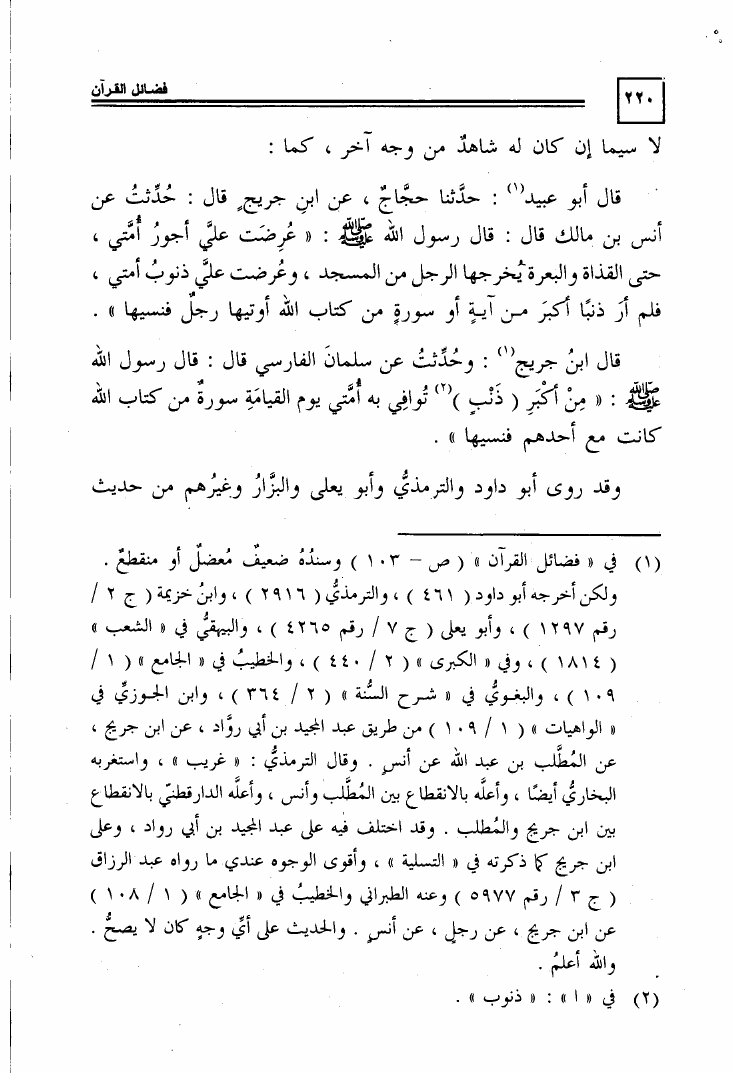 فضائل القرآن
٢٢٠
لا سيما إن كان له شاهدٌ من وجه آخر ، كما :
قال أبو عبيد(١) : حدَّثنا حجَّاجٌ ، عن ابنِ جريجٍ قال : حُدِّثتُ عن
أنس بن مالك قال : قال رسول الله ﷺ : « عُرِضَت عليَّ أجورُ أُمَّتي ،
حتى القذاة والبعرة يُخرجها الرجل من المسجد ، وعُرضت عليَّ ذنوبُ أمتي ،
فلم أرَ ذنبًا أكبرَ مـن آيـةٍ أو سورةٍ من كتاب الله أوتيها رجلٌ فنسيها » .
قال ابنُ جريج(١) : وحُدِّثتُ عن سلمانَ الفارسي قال : قال رسول الله
ﷺ : « مِنْ أكْبَرِ ( ذَنْبٍ )(٢) تُوافِي به أُمَّتي يوم القيامَةِ سورةٌ من كتاب الله
كانت مع أحدهم فنسيها » .
وقد روى أبو داود والترمذيُّ وأبو يعلى والبزَّارُ وغيرُهم من حديث
(١) في « فضائل القرآن » ( ص – ١٠٣ ) وسندُهُ ضعيفٌ مُعضلٌ أو منقطعٌ .
ولكن أخرجه أبو داود ( ٤٦١ ) ، والترمذيُّ ( ٢٩١٦ ) ، وابنُ خزيمة ( ج ٢ /
رقم ١٢٩٧ ) ، وأبو يعلى ( ج ٧ / رقم ٤٢٦٥ ) ، والبيهقيُّ في « الشعب »
( ١٨١٤ ) ، وفي « الكبرى » ( ٢ / ٤٤٠ ) ، والخطيبُ في « الجامع » ( ١ /
١٠٩ ) ، والبغـويُّ في « شـرح السُّنة » ( ٢ / ٣٦٤ ) ، وابن الجـوزيِّ في
« الواهيات » ( ١ / ١٠٩ ) من طريق عبد المجيد بن أبي روَّاد ، عن ابن جريج ،
عن المُطَّلب بن عبد الله عن أنسٍ . وقال الترمذيُّ : « غريب » ، واستغربه
البخاريُّ أيضًا ، وأعلَّه بالانقطاع بين المُطَّلب وأنس ، وأعلَّه الدارقطنيّ بالانقطاع
بين ابن جريج والمُطلب . وقد اختلف فيه على عبد المجيد بن أبي رواد ، وعلى
ابن جريج كما ذكرته في « التسلية » ، وأقوى الوجوه عندي ما رواه عبد الرزاق
( ج ٣ / رقم ٥٩٧٧ ) وعنه الطبراني والخطيبُ في « الجامع » ( ١ / ١٠٨ )
عن ابن جريج ، عن رجلٍ ، عن أنسٍ . والحديث على أيِّ وجهٍ كان لا يصحُّ .
والله أعلمُ .
(٢) في « ا » : « ذنوب » .